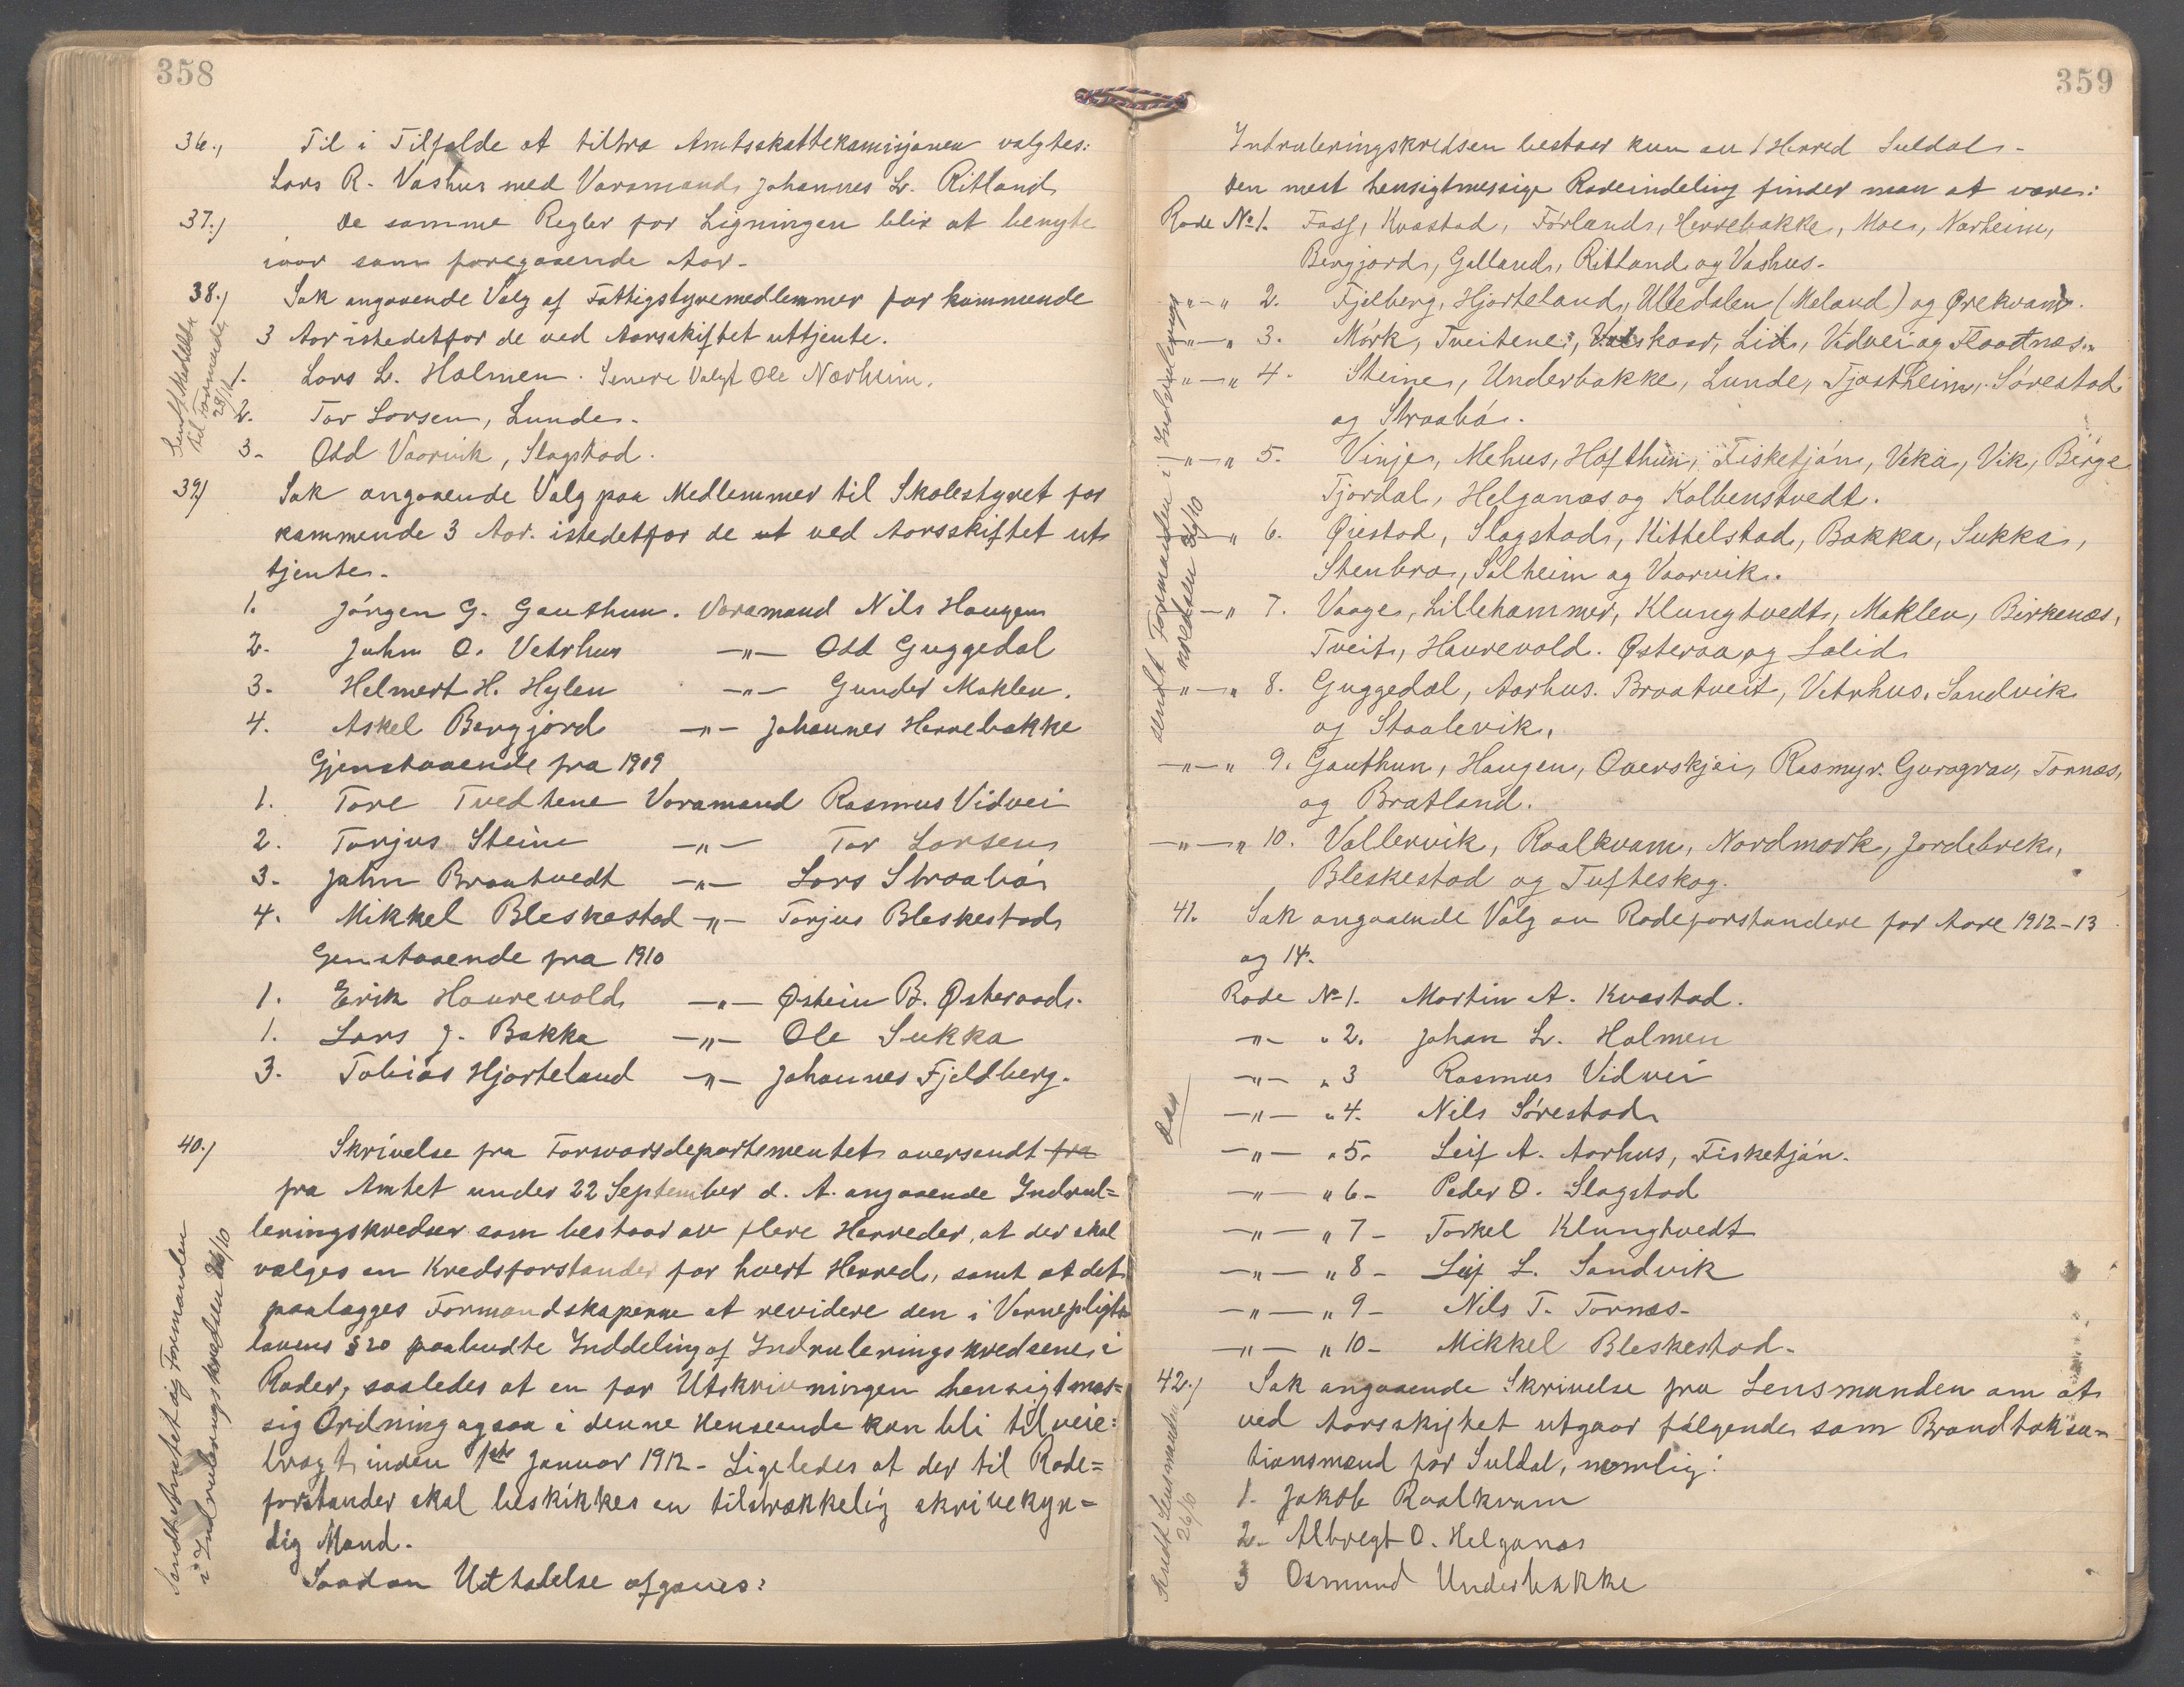 358
36.) Til i Tilfælde at tiltræ Amtsskattekomisjonen valgtes:
Lars R. Vashus med Varamand Johannes L. Ritland
37.) De samme Regler for Ligningen blir at benyte
iaar som foregaaende Aar.
38.) Sak angaaende Valg af Fattigstyremedlemmer for kommende
3 Aar istedetfor de ved Aarsskiftet uttjente.
1. Lars L. Holmen. Senere Valgt Ole Nærheim.
2. Tor Larsen, Lunde.
3. Odd Vaarvik, Slagstad.
39) Sak angaaende Valg paa Medlemmer til Skolestyret for
kommende 3 Aar. istedetfor de ut ved Aarsskiftet ut
tjente.
1. Jørgen G. Gauthun. Varamand Nils Haugen
2. John O. Vetrhus -"- Odd Guggedal
3. Helmert H. Hylen -"- Gunder Moklev.
4. Askel Bergjord -"- Johannes Herrebakke
Gjenstaaende fra 1909
1. Tore Tvedtene Varamand Rasmus Vidvei
2. Torjus Steine -"- Tor Larsen
3. John Braatvedt -"- Lars Straabø
4. Mikkel Bleskestad -"- Torjus Bleskestad
Genstaaende fra 1910
1. Erik Haurevold -"- Østein B. Østeraads.
1. Lars J. Bakka -"- Ole Sukka
3. Tobias Hjorteland -"- Johannes Fjeldberg.
40.) Skrivelse fra Forsvarsdepartementet oversendt fra
fra Amtet under 22 September d. A. angaaende Indrul=
leringskredser som bestaar av flere Herreder, at der skal
vælges en Kredsforstander for hvert Herred, samt at det
paalægges Formandskaperne at revidere den i Vernepligts
lovens § 20 paabudte Inddeling af Indruleringskredsene i
Roder, saaledes at en for Utskrivningen hensigtmæs=
sig Ordning ogsaa i denne Henseende kan bli tilveie=
bragt inden 1ste Januar 1912. Ligeledes at der til Rode=
forstander skal beskikkes en tilstrækkelig skrivekyn=
dig Mand.
Saadan Uttalelse afgaves:
Sendt Amtet og Formanden
i Indruleringskredsen 26/10
359
Indruleringskredsen bestaar kun av 1 Herred Suldal.
Den mest hensigtmessige Rodeindeling finder man at være:
Rode No 1. Foss, Kvæstad, Førland, Herrebakke, Moe, Nærheim,
Bergjord, Galland, Ritland og Vashus.
-"-" 2. Fjelberg, Hjorteland, Ulledalen (Meland) og Ørekvam.
-"-" 3. Mørk, Tveitene, Vatskaar, Lid, Vidvei og Flaatnæs.
-"-" 4. Steine, Underbakke, Lunde, Tjøstheim, Sørestad
og Straabø.
-"-" 5. Vinje, Mehus, Hofthun, Fisketjøn, Veka, Vik, Berge
Tjordal, Helganæs og Kolbenstvedt.
-"-" 6. Øiestad, Slagstad, Kittelstad, Bakka, Sukka,
Stenbro, Solheim og Vaarvik.
-"-" 7. Vaage, Lillehammer, Klungtvedt, Moklev, Birkenæs,
Tveit, Haurevold. Østeraa og Lalid
-"-" 8. Guggedal, Aarhus. Braatveit, Vetrhus, Sandvik
og Staalevik.
-"-" 9. Gauthun, Haugen, Overskjei, Rasmyr. Guragrav, Tornæs,
og Bratland.
-"-" 10. Vallervik, Roalkvam, Nordmork, Jordebrek,
Bleskestad og Tufteskog.
41. Sak angaaende Valg av Rodeforstandere for Aare 1912-13
og 14.
Rode No 1. Martin A. Kvæstad.
-"- " 2. Johan L. Holmen
-"- " 3 Rasmus Vidvei
-"- " 4. Nils Sørestad
-"- " 5. Leif A. Aarhus, Fisketjøn.
-"- " 6- Peder O. Slagstad
-"- " 7- Torkel Klungtvedt
-"- " 8- Leif L. Sandvik
-"- " 9- Nils T. Tornæs.
-"- " 10- Mikkel Bleskestad.
42.) Sak angaaende Skrivelse fra Lensmanden om at
ved Aarsskiftet utgaar følgende som Brandtaksa=
tionsmænd for Suldal, nemlig:
1. Jakob Roalkvam
2. Albregt O. Helganæs
3 Osmund Underbakke
Sendt Lensmanden
26/10